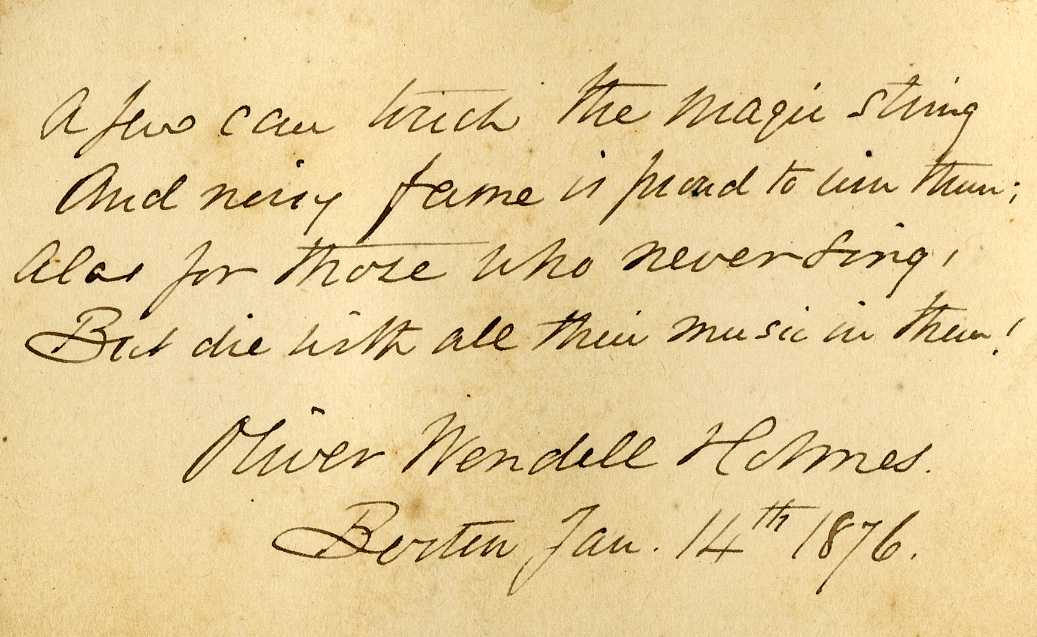 A few can touch the magic string
And noisy fame is proud to win them;
Alas for those who never sing,
But die with all their music in them!
Oliver Wendell Holmes.
Boston Jan. 14th 1876.